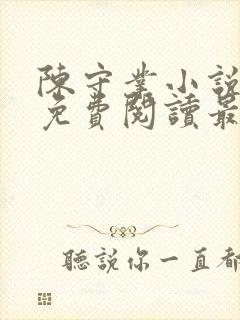 陳守業小說
免費閱讀最
聽說你一直都